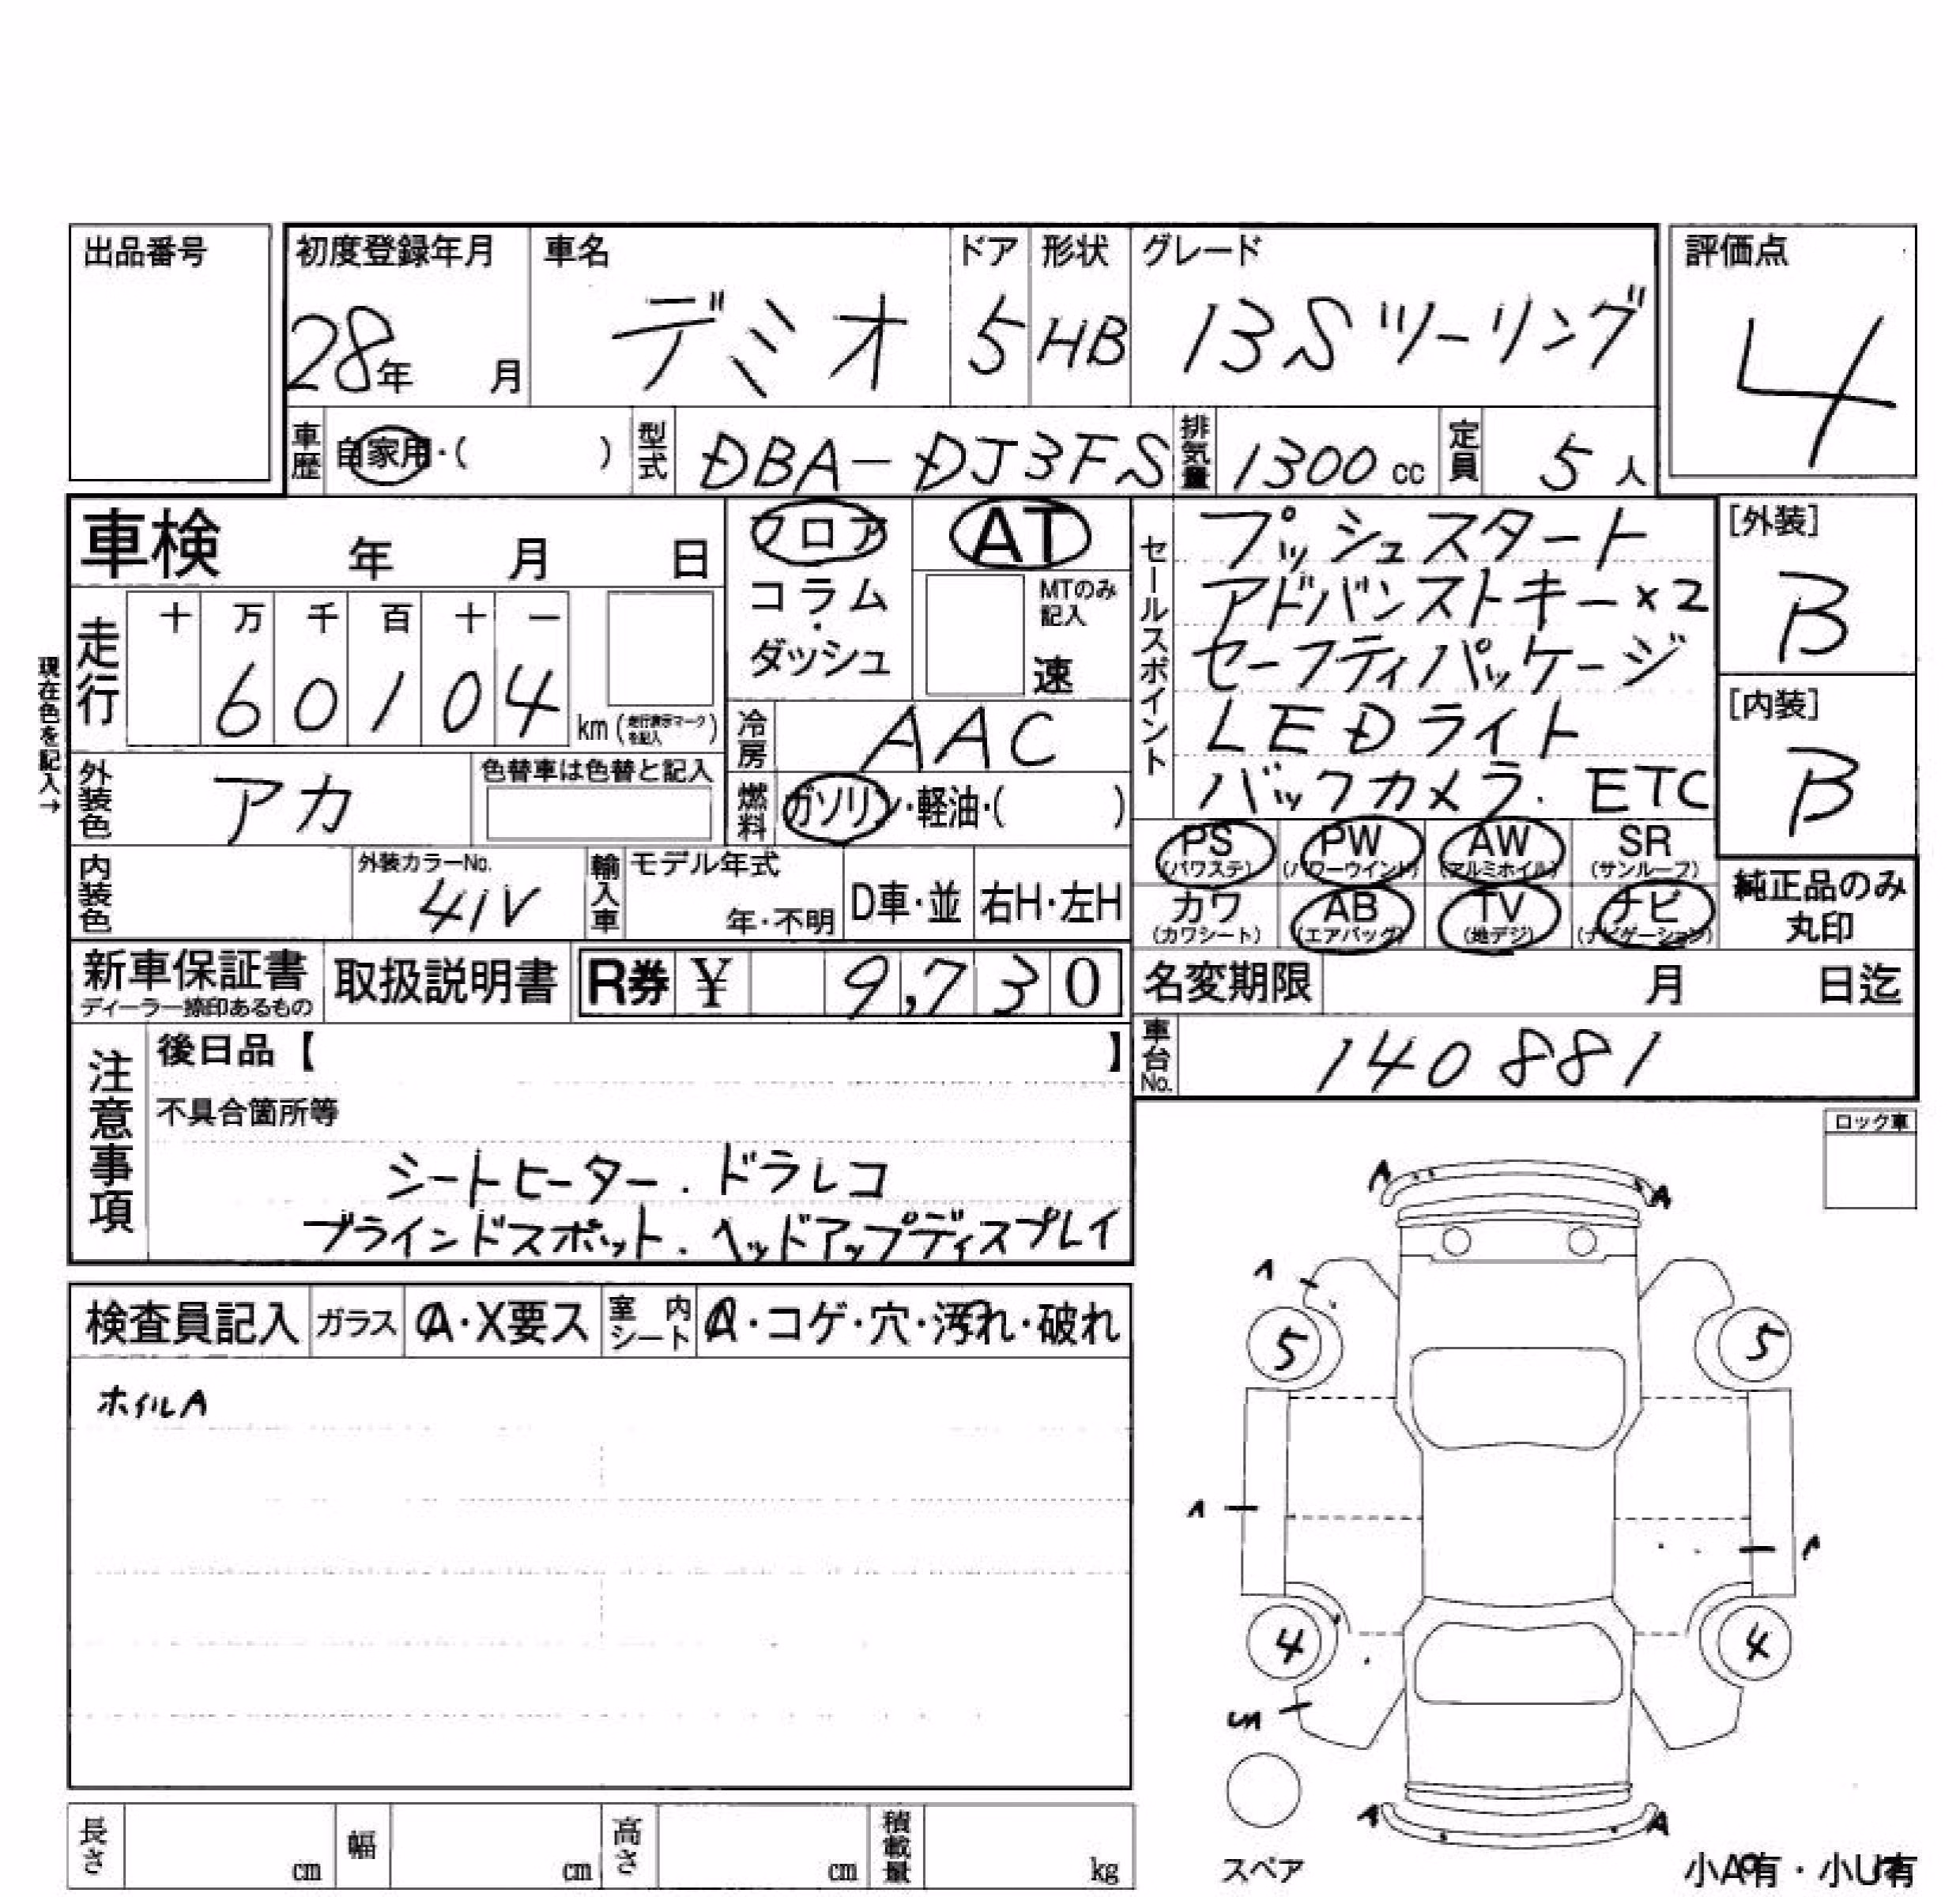 出品番号
初度登録年月 車名 ドア 形状 グレード 評価点
28年 月 デミオ 5 HB 13Sツーリング 4
車歴 自家用・( ) 型式 DBA-DJ3FS 排気量 1300 cc 定員 5 人
車検 年 月 日
フロア
コラム
・
ダッシュ
AT
MTのみ
記入
速
セールスポイント
プッシュスタート
アドバンストキー×2
セーフティパッケージ
LEDライト
バックカメラ. ETC
[外装]
B
[内装]
B
現在色を記入→
走行 十 万 千 百 十 一
6 0 1 0 4 km (走行表示マークを記入)
冷房 AAC
外装色 アカ 色替車は色替と記入
燃料 ガソリン・軽油・( )
PS (パワステ) PW (パワーウインド) AW (アルミホイル) SR (サンルーフ)
カワ (カワシート) AB (エアバッグ) TV (地デジ) ナビ (ナビゲーション)
純正品のみ
丸印
内装色 外装カラーNo. 41V 輸入車 モデル年式 年・不明 D車・並 右H・左H
新車保証書 ディーラー捺印あるもの 取扱説明書 R券 ¥ 9,730
名変期限 月 日迄
車台No. 140881
注意事項
後日品【 】
不具合箇所等
シートヒーター. ドラレコ
ブラインドスポット. ヘッドアップディスプレイ
ロック車
検査員記入 ガラス A・X要ス 室内シート A・コゲ・穴・汚れ・破れ
ホイルA
A A
A
5 5
A A
4 4
A A
スペア
小A有・小U有
長さ cm 幅 cm 高さ cm 積載量 kg